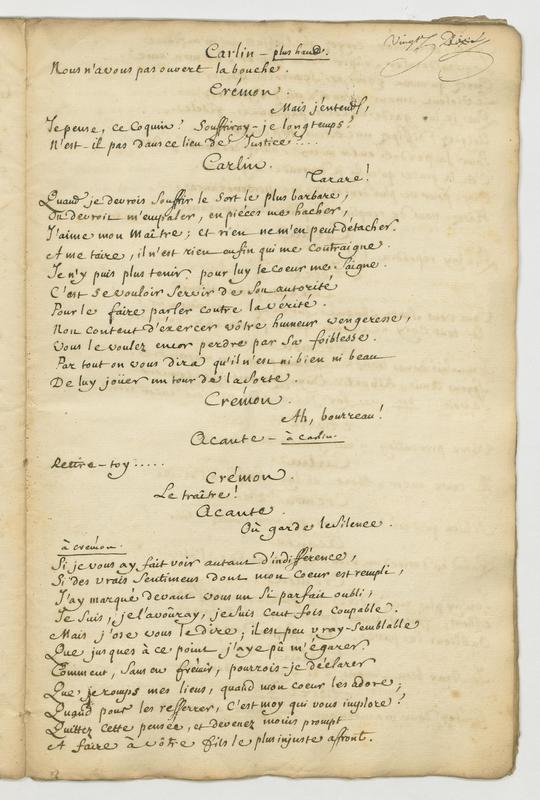 Vingt
Carlin – plus haud.
Nous n'avous pas ouvert la bouche.
Crémon.
Mais j'entends,
Je pense, ce Coquin? Souffriray-je longtemps?
N'est-il pas dans ce lieu de Justice?...
Carlin.
Tarare!
Quand je devrois Souffrir le Sort le plus barbare,
On devroit m'empaler, en piéces me hacher,
J'aime mon Maître; et rien ne m'en peut détacher.
A me taire, il n'est rien enfin qui me contraigne.
Je n'y puis plus tenir pour luy le coeur me Saigne.
C'est Se vouloir Servir de Son autorité
Pour le faire parler contre la vérité.
Non content d'éxercer vôtre humeur vengeresse,
Vous le voulez encor perdre par Sa foiblesse.
Par tout on vous dira qu'il n'est ni bien ni beau
De luy joüer un tour de la Sorte.
Crémon.
Ah, bourreau!
Acante – à Carlin.
Retire-toy.....
Crémon.
Le traître!
Acante.
Où garde le Silence.
à Crémon.
Si je vous ay fait voir autant d'indifférence,
Si des vrais Sentimens dont mon coeur est rempli,
J'ay marqué devant vous un Si parfait oubli,
Je Suis, je l'avoüray, je Suis cent fois coupable.
Mais j'ose vous le dire; il est peu vray-Semblable
Que jusques à ce point j'aye pû m'égarer.
Comment, Sans en frémir, pourrois-je déclarer
Que je romps mes liens, quand mon coeur les adore;
Quand pour les resserrer, C'est moy qui vous implore?
Quittez cette pensée, et devenez moins prompt
A faire à vôtre fils le plus injuste affront.